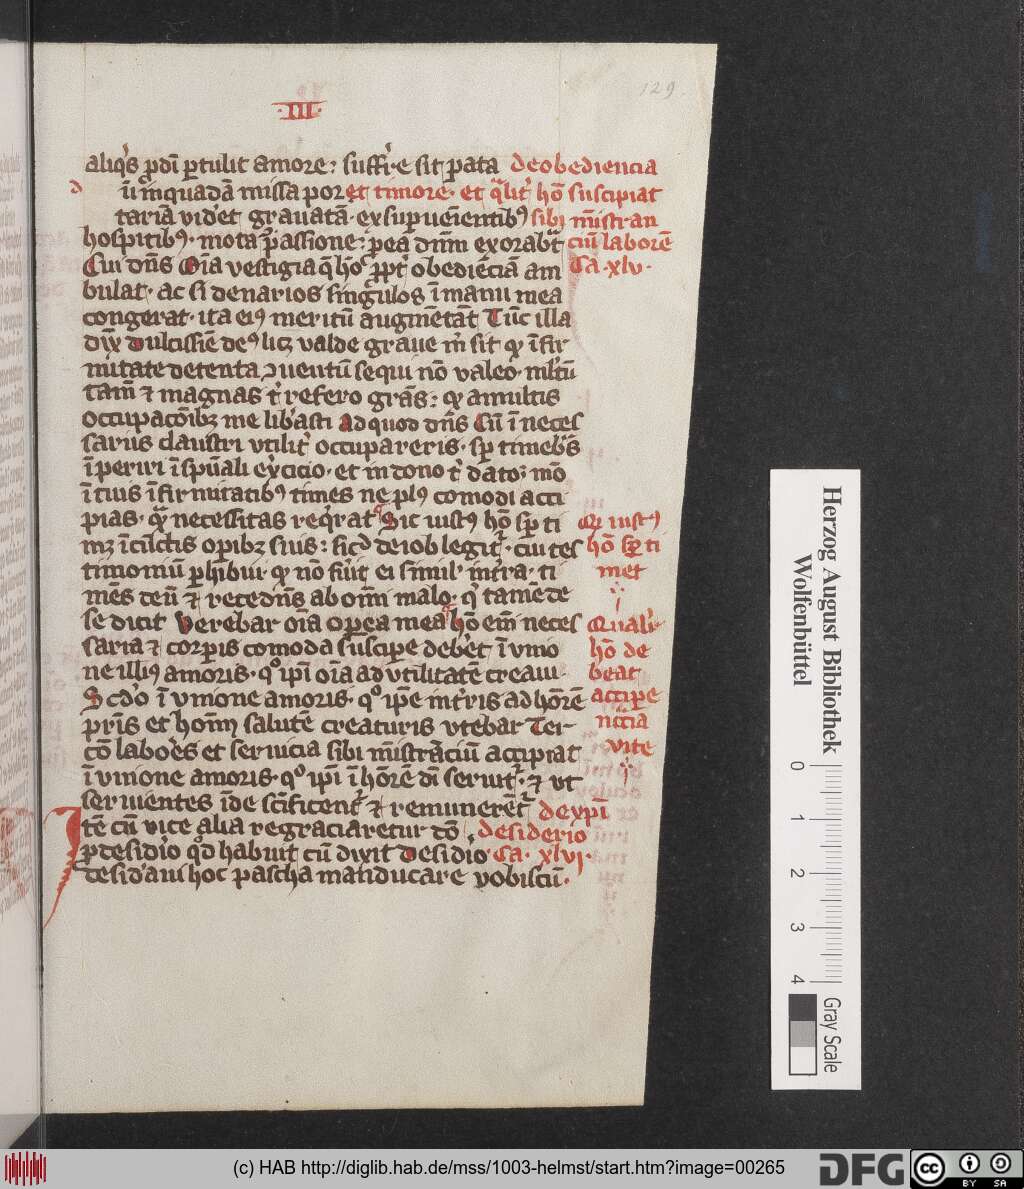 129.
.III.
aliqͥs ꝑdi ꝑtulit amore: suffr̄e sit ꝑata de obediencia
d
Cū in quadā missa por et timore. et qͣlitͬ hō suscipiat
tariā videt grauatā. ex suꝑueniēntibꝰ sibi ministran
hospitibꝰ. mota ꝯpassione: ꝓ ea dnm̄ exorabͣt cium laborē
Cui dn̄s Oīa vestigia q̄ hō ꝓpt obediēciā am Ca. xlv.
bulat. ac si denarios singulos ī manu mea
congerat. ita eiꝰ meritū augmētat Tūc illa
dix̄ Dulcissīe deꝰ licꝫ valde graue m̄ sit ꝙ īfir
mitate detenta ꝯuentū sequi nō valeo. ml̄tū
tam̄ ⁊ magnas t̄ refero grās: ꝙ a multis
occupacōibꝫ me libasti Ad quod dn̄s Cū ī neces
sariis claustri vtilitͬ occupareris. sꝑ timebas
īpeririri ī spūali ex̄cicio. et in dono t̄ dato: mō
ī tuis īfirmitatibꝰ times ne plꝰ comodi acci
pias. qͣm necessitas reqͥrat Sic iustꝰ hō sꝑ ti Qd iustꝰ
mꝫ ī cūctis opibꝫ suis: sicͩ de iob legitͬ. cui tes hō sꝑ ti
timoniū ꝑhibui. ꝙ nō fuit ei similꝭ in tͬra. ti met
mēs deū ⁊ recedn̄s ab om̄i malo. qͥ tamē de
se dicit Verebar oīa oꝑa mea hō em̄ neces Qualitͬ
saria ⁊ corꝑis comoda suscipe debet ī vnio hō de
ne illius amoris. qͦ ip̄i oīa ad vtilitatē creaui. beat
Scd̄o ī vnione amoris. qͦ ip̄e in tͬris ad hōrē acciꝑe
pr̄is et hom̄ salutē creaturis vtebar Ter nc̄c̄ia
cō labores et seruicia sibi mīstraciū accipiat vite
ī vnione amoris. qͦ ip̄i ī hōrē dī seruitͬ. ⁊ vt
seruientes īde sc̄ificentͬ ⁊ remunerētͬ de xpī
I
tē cū vice alia regraciaretur dō desiderio
ꝓ desidio qd̄ habuit cū dixit Desidio Ca. xlvi.
desidaui hoc pascha manducare vobiscū.
Herzog August Bibliothek
Wolfenbüttel
0 1 2 3 4
Gray Scale
(c) HAB http://diglib.hab.de/mss/1003-helmst/start.htm?image=00265
DFG
cc BY SA